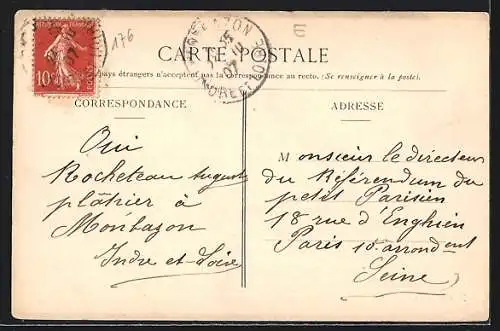 176
E
MONTBAZON
07
INDRE ET LOIRE
10c
CARTE POSTALE
pays étrangers n'acceptent pas la correspondance au recto. (Se renseigner à la poste).
CORRESPONDANCE
Oui
Rocheteau Auguste
plâtrier à
Montbazon
Indre et-Loire
ADRESSE
Monsieur le directeur
du Référendum du
petit Parisien
18 rue d'Enghien
Paris 10e arrondent
Seine